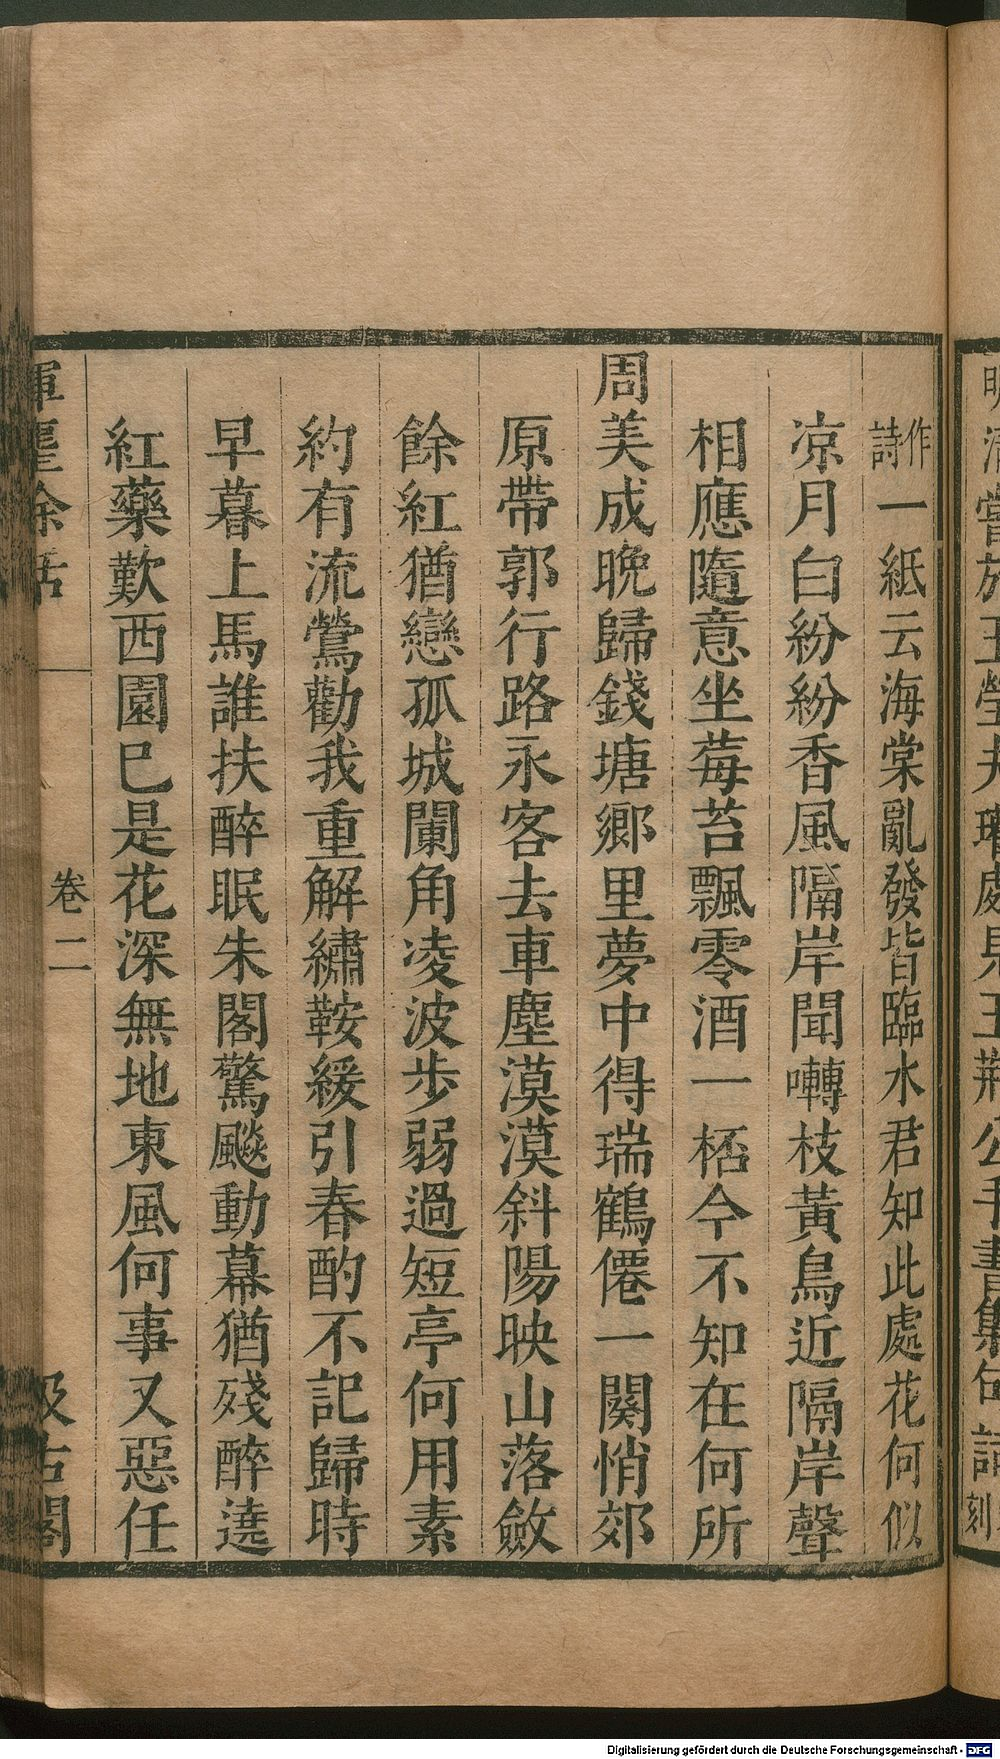 明清嘗於王瑩夫瓘處見王荊公手書集句詩刻
作詩一紙云海棠亂發皆臨水君知此處花何似
凉月白紛紛香風隔岸聞囀枝黃鳥近隔岸聲
相應隨意坐莓苔飄零酒一桮今不知在何所
周美成晚歸錢塘鄉里夢中得瑞鶴僊一闋悄郊
原帶郭行路永客去車塵漠漠斜陽映山落斂
餘紅猶戀孤城闌角凌波步弱過短亭何用素
約有流鶯勸我重解繡鞍緩引春酌不記歸時
早暮上馬誰扶醉眠朱閣驚飈動幕猶殘醉遶
紅藥歎西園巳是花深無地東風何事又惡任
揮麈余話
卷二
汲古閣
Digitalisierung gefördert durch die Deutsche Forschungsgemeinschaft - DFG